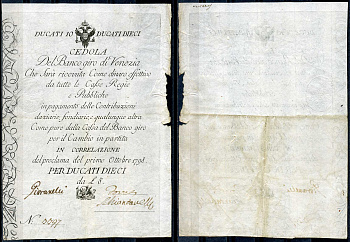 DUCATI 10 DUCATI DIECI
CEDOLA
Del Banco giro di Venezia
Che Sarà ricevuta Come denaro effettivo
da tutte le Casse Regie
e Pubbliche
in pagamento delle Contribuzioni
daziarie, fondiarie, qualunque altra
Come pure dalla Cassa del Banco giro
per il Cambio in partita
IN CORRELAZIONE
del proclama del primo Ottobre 1798.
PER DUCATI DIECI
da L 8.
N.